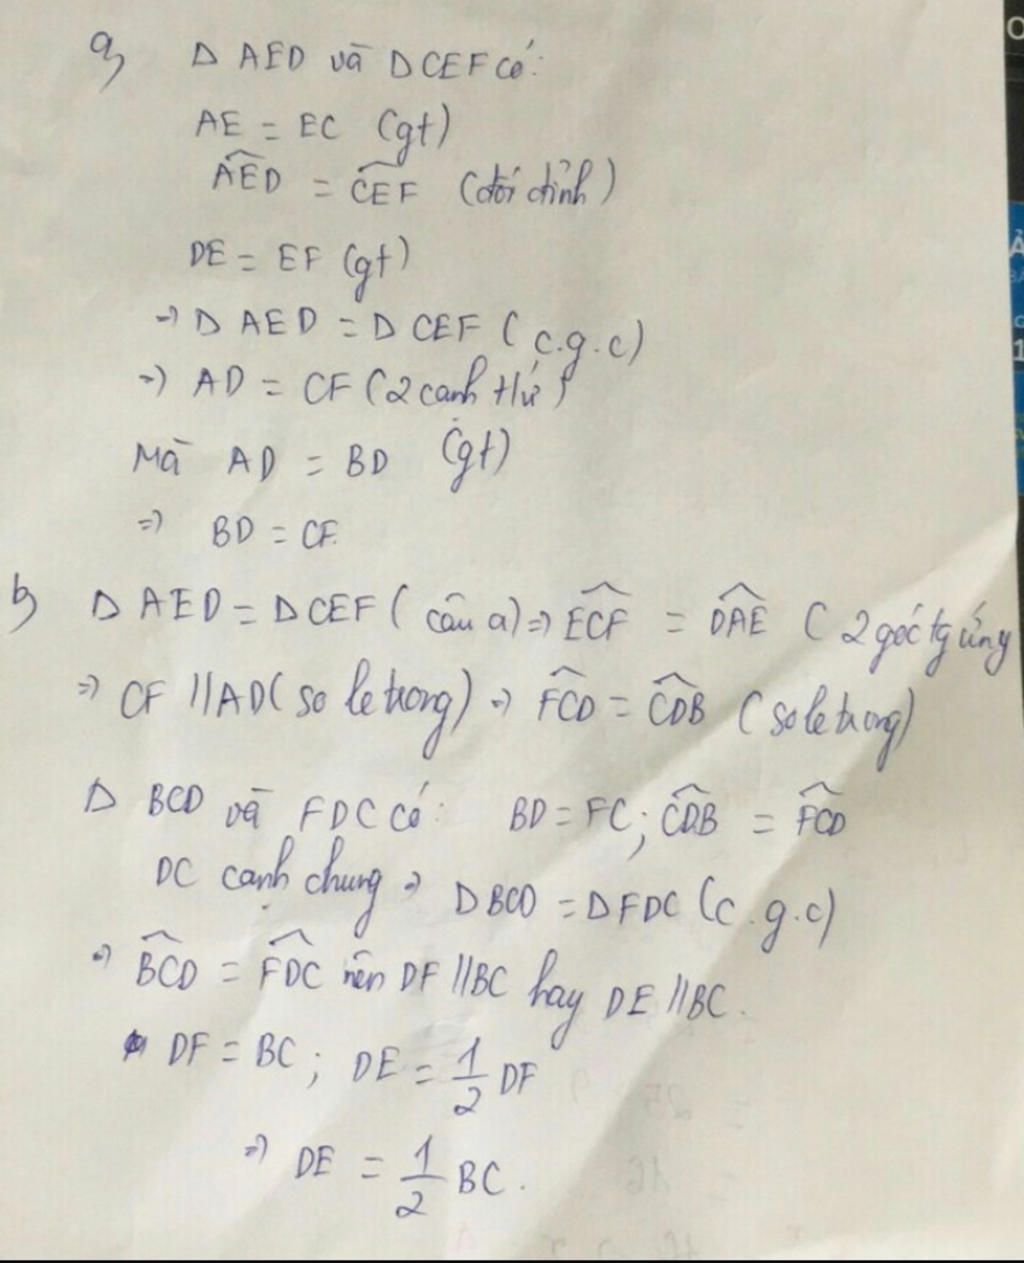 a) Δ AED và Δ CEF có:
AE = EC (gt)
\widehat{AED} = \widehat{CEF} (đối đỉnh)
DE = EF (gt)
=> Δ AED = Δ CEF (c.g.c)
=> AD = CF (2 cạnh tứ)
Mà AD = BD (gt)
=> BD = CF.
b) Δ AED = Δ CEF (câu a) => \widehat{ECF} = \widehat{DAE} (2 góc tg ứng
=> CF // AD (so le trong) => \widehat{FCD} = \widehat{CDB} (so le trong)
Δ BCD và FDC có: BD = FC; \widehat{CDB} = \widehat{FCD}
DC cạnh chung => Δ BCD = Δ FDC (c.g.c)
=> \widehat{BCD} = \widehat{FDC} nên DF // BC hay DE // BC.
DF = BC; DE = \frac{1}{2} DF
=> DE = \frac{1}{2} BC.